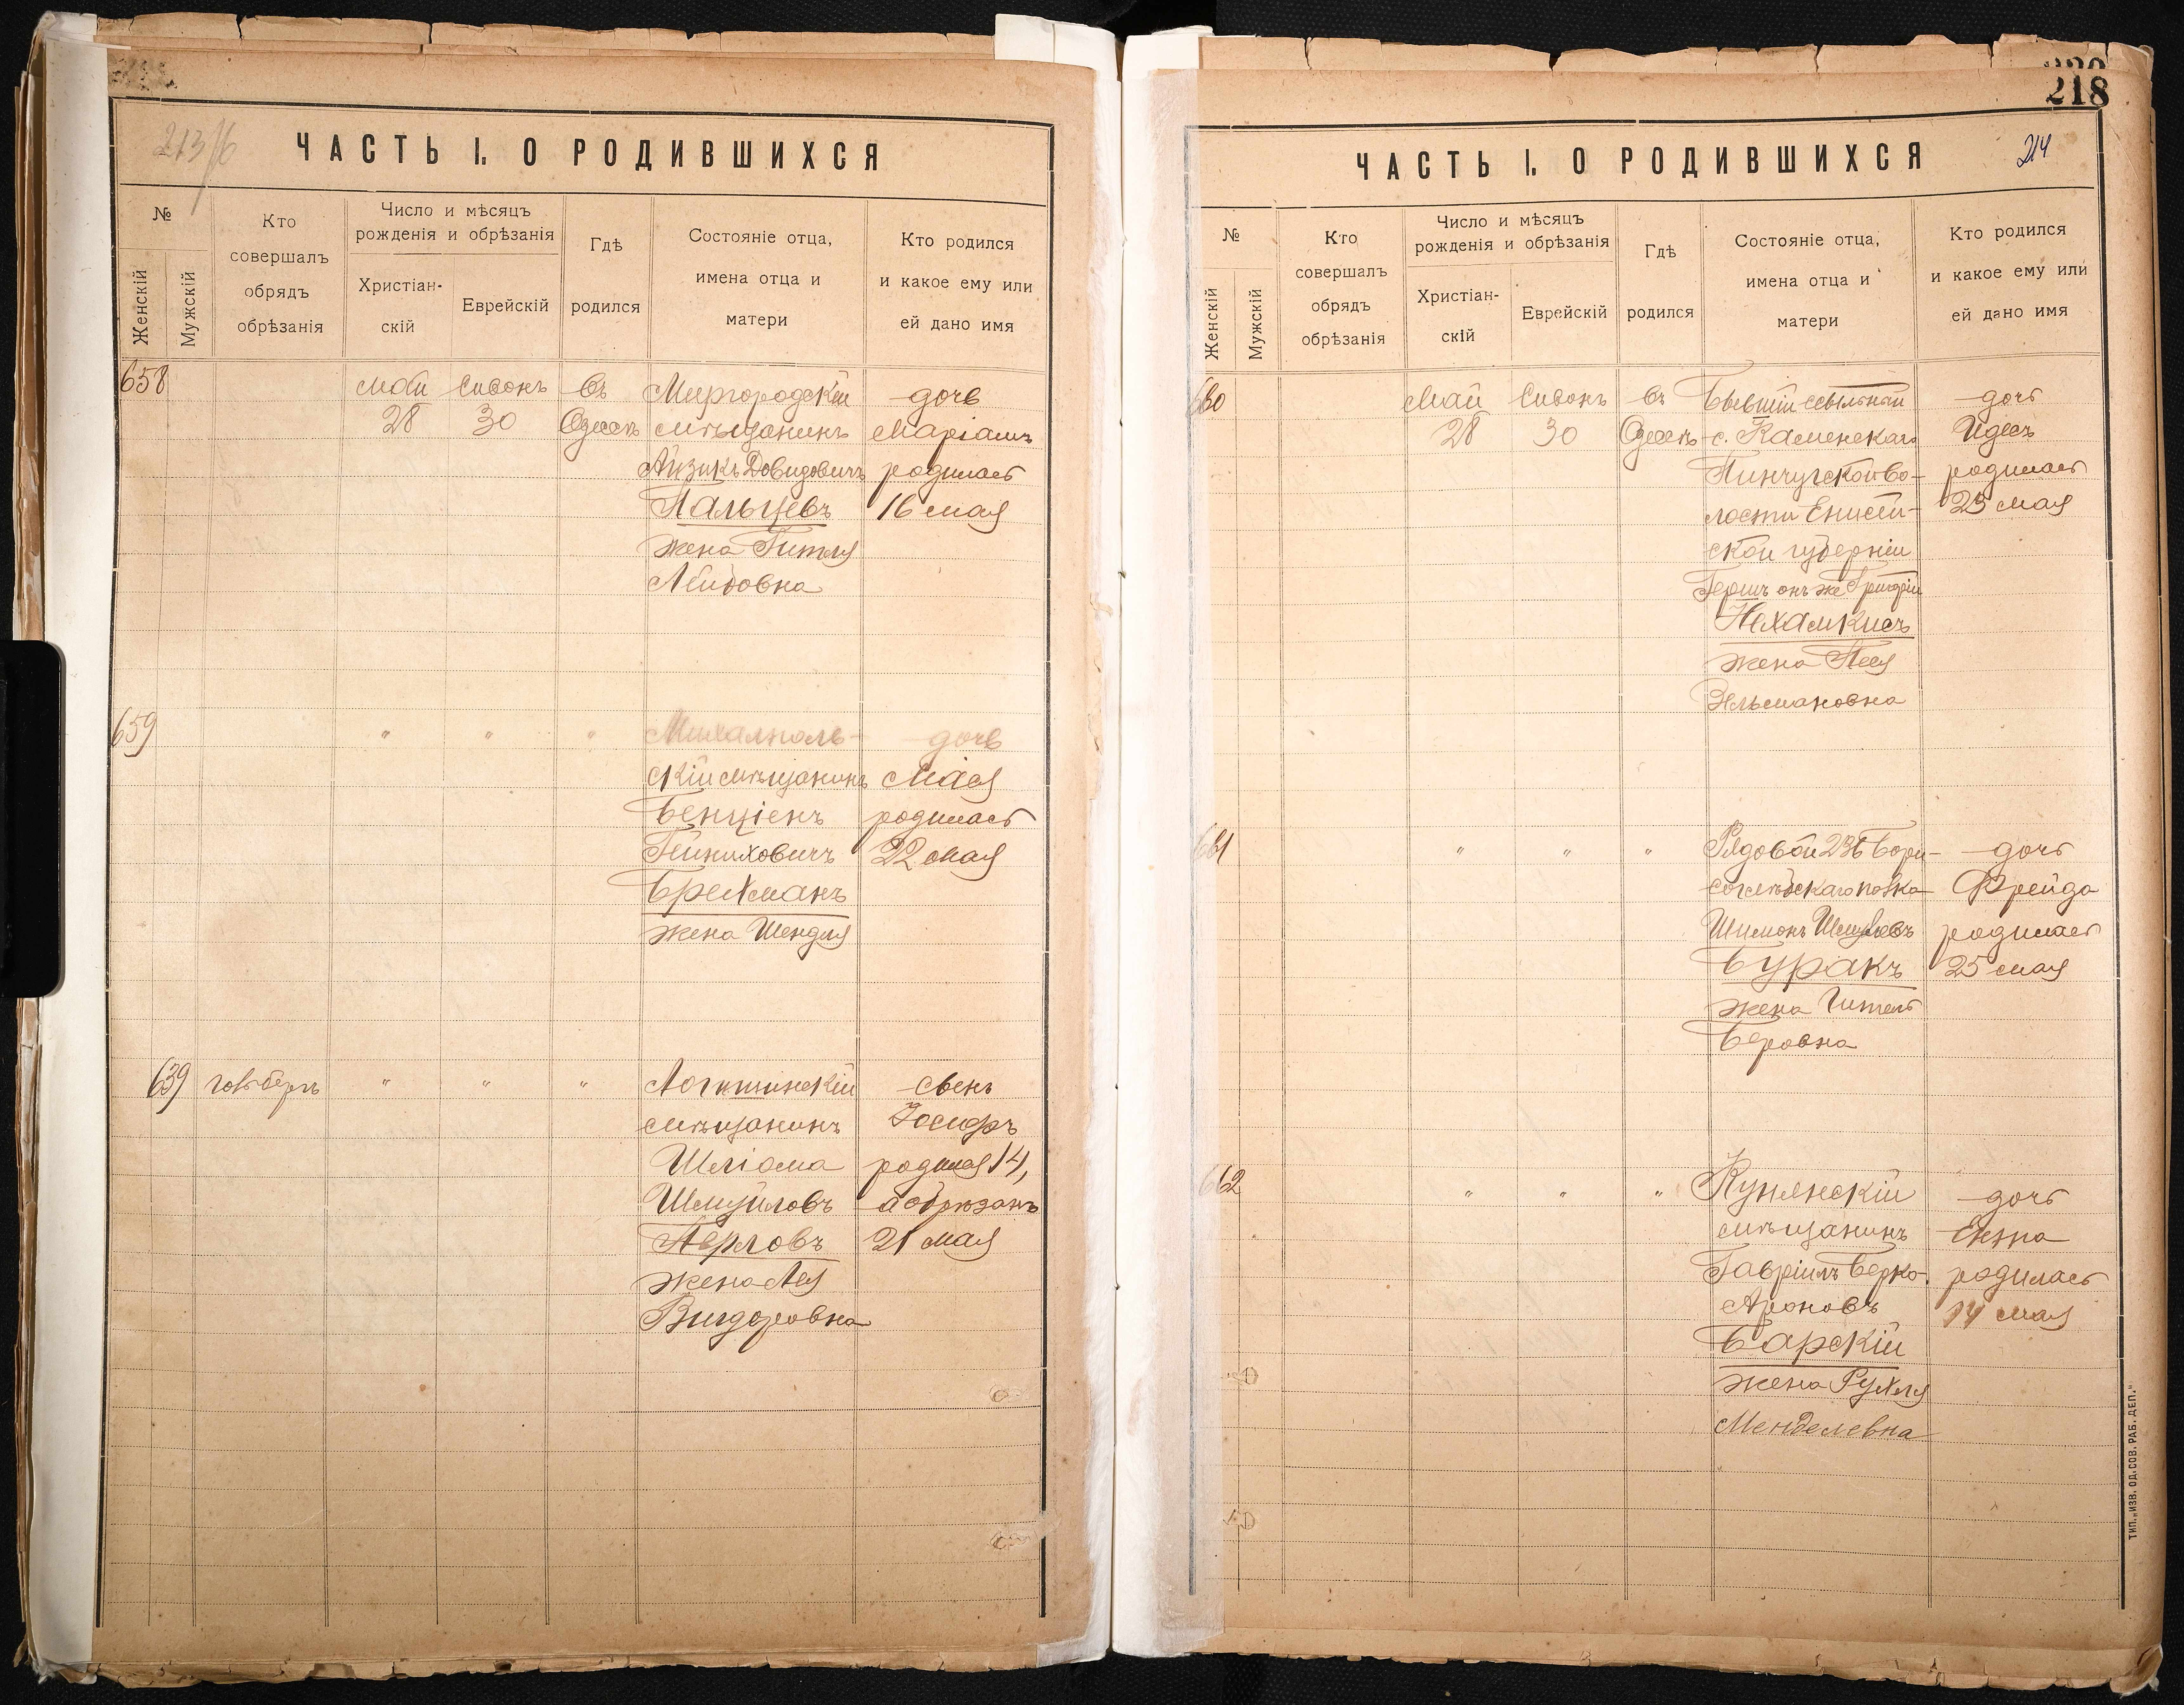 213/б
ЧАСТЬ I. О РОДИВШИХСЯ
№
Женскій
Мужскій
Кто
совершалъ
обрядъ
обрѣзанія
Число и мѣсяцъ
рожденія и обрѣзанія
Христіан-
скій
Еврейскій
Гдѣ
родился
Состояніе отца,
имена отца и
матери
Кто родился
и какое ему или
ей дано имя
658
май
28
Сивонъ
30
въ
Одессѣ
Миргородскій
мѣщанинъ
Айзикъ Довидовичъ
Пальцевъ
жена Гитля
Лейбовна
дочь
Маріамъ
родилась
16 мая
659
" " "
Михалполь-
скій мѣщанинъ
Бенціенъ
Гейниховичъ
Брехманъ
жена Шендля
дочь
родилась
22 мая
639
" " "
мѣщанинъ
Шліома
Шмуйловъ
Перловъ
жена Лея
Вигдоровна
сынъ
Іосифъ
родился 14,
а обрѣзанъ
21 мая
218
214
ЧАСТЬ I. О РОДИВШИХСЯ
№
Женскій
Мужскій
Кто
совершалъ
обрядъ
обрѣзанія
Число и мѣсяцъ
рожденія и обрѣзанія
Христіан-
скій
Еврейскій
Гдѣ
родился
Состояніе отца,
имена отца и
матери
Кто родился
и какое ему или
ей дано имя
660
Май
28
Сивонъ
30
въ
Одессѣ
Бывшій ссыльный
с. Каменскаго
Пинчугской во-
лости Енисей-
ской губерніи
Гершъ онъ же Григорій
Нехамкисъ
жена Песя
Зельмановна
дочь
Идесъ
родилась
23 мая
661
" " "
Рядовой 236 Бори-
соглѣбскаго полка
Шимонъ Шмулевъ
Буракъ
жена Гитель
Беровна
дочь
Фрейда
родилась
25 мая
662
" " "
мѣщанинъ
Гавріилъ Берко
Ароновъ
Барскій
жена Рухля
Менделевна
дочь
родилась
14 мая
ТИП. „ИЗВ. ОД. СОВ. РАБ. ДЕП."